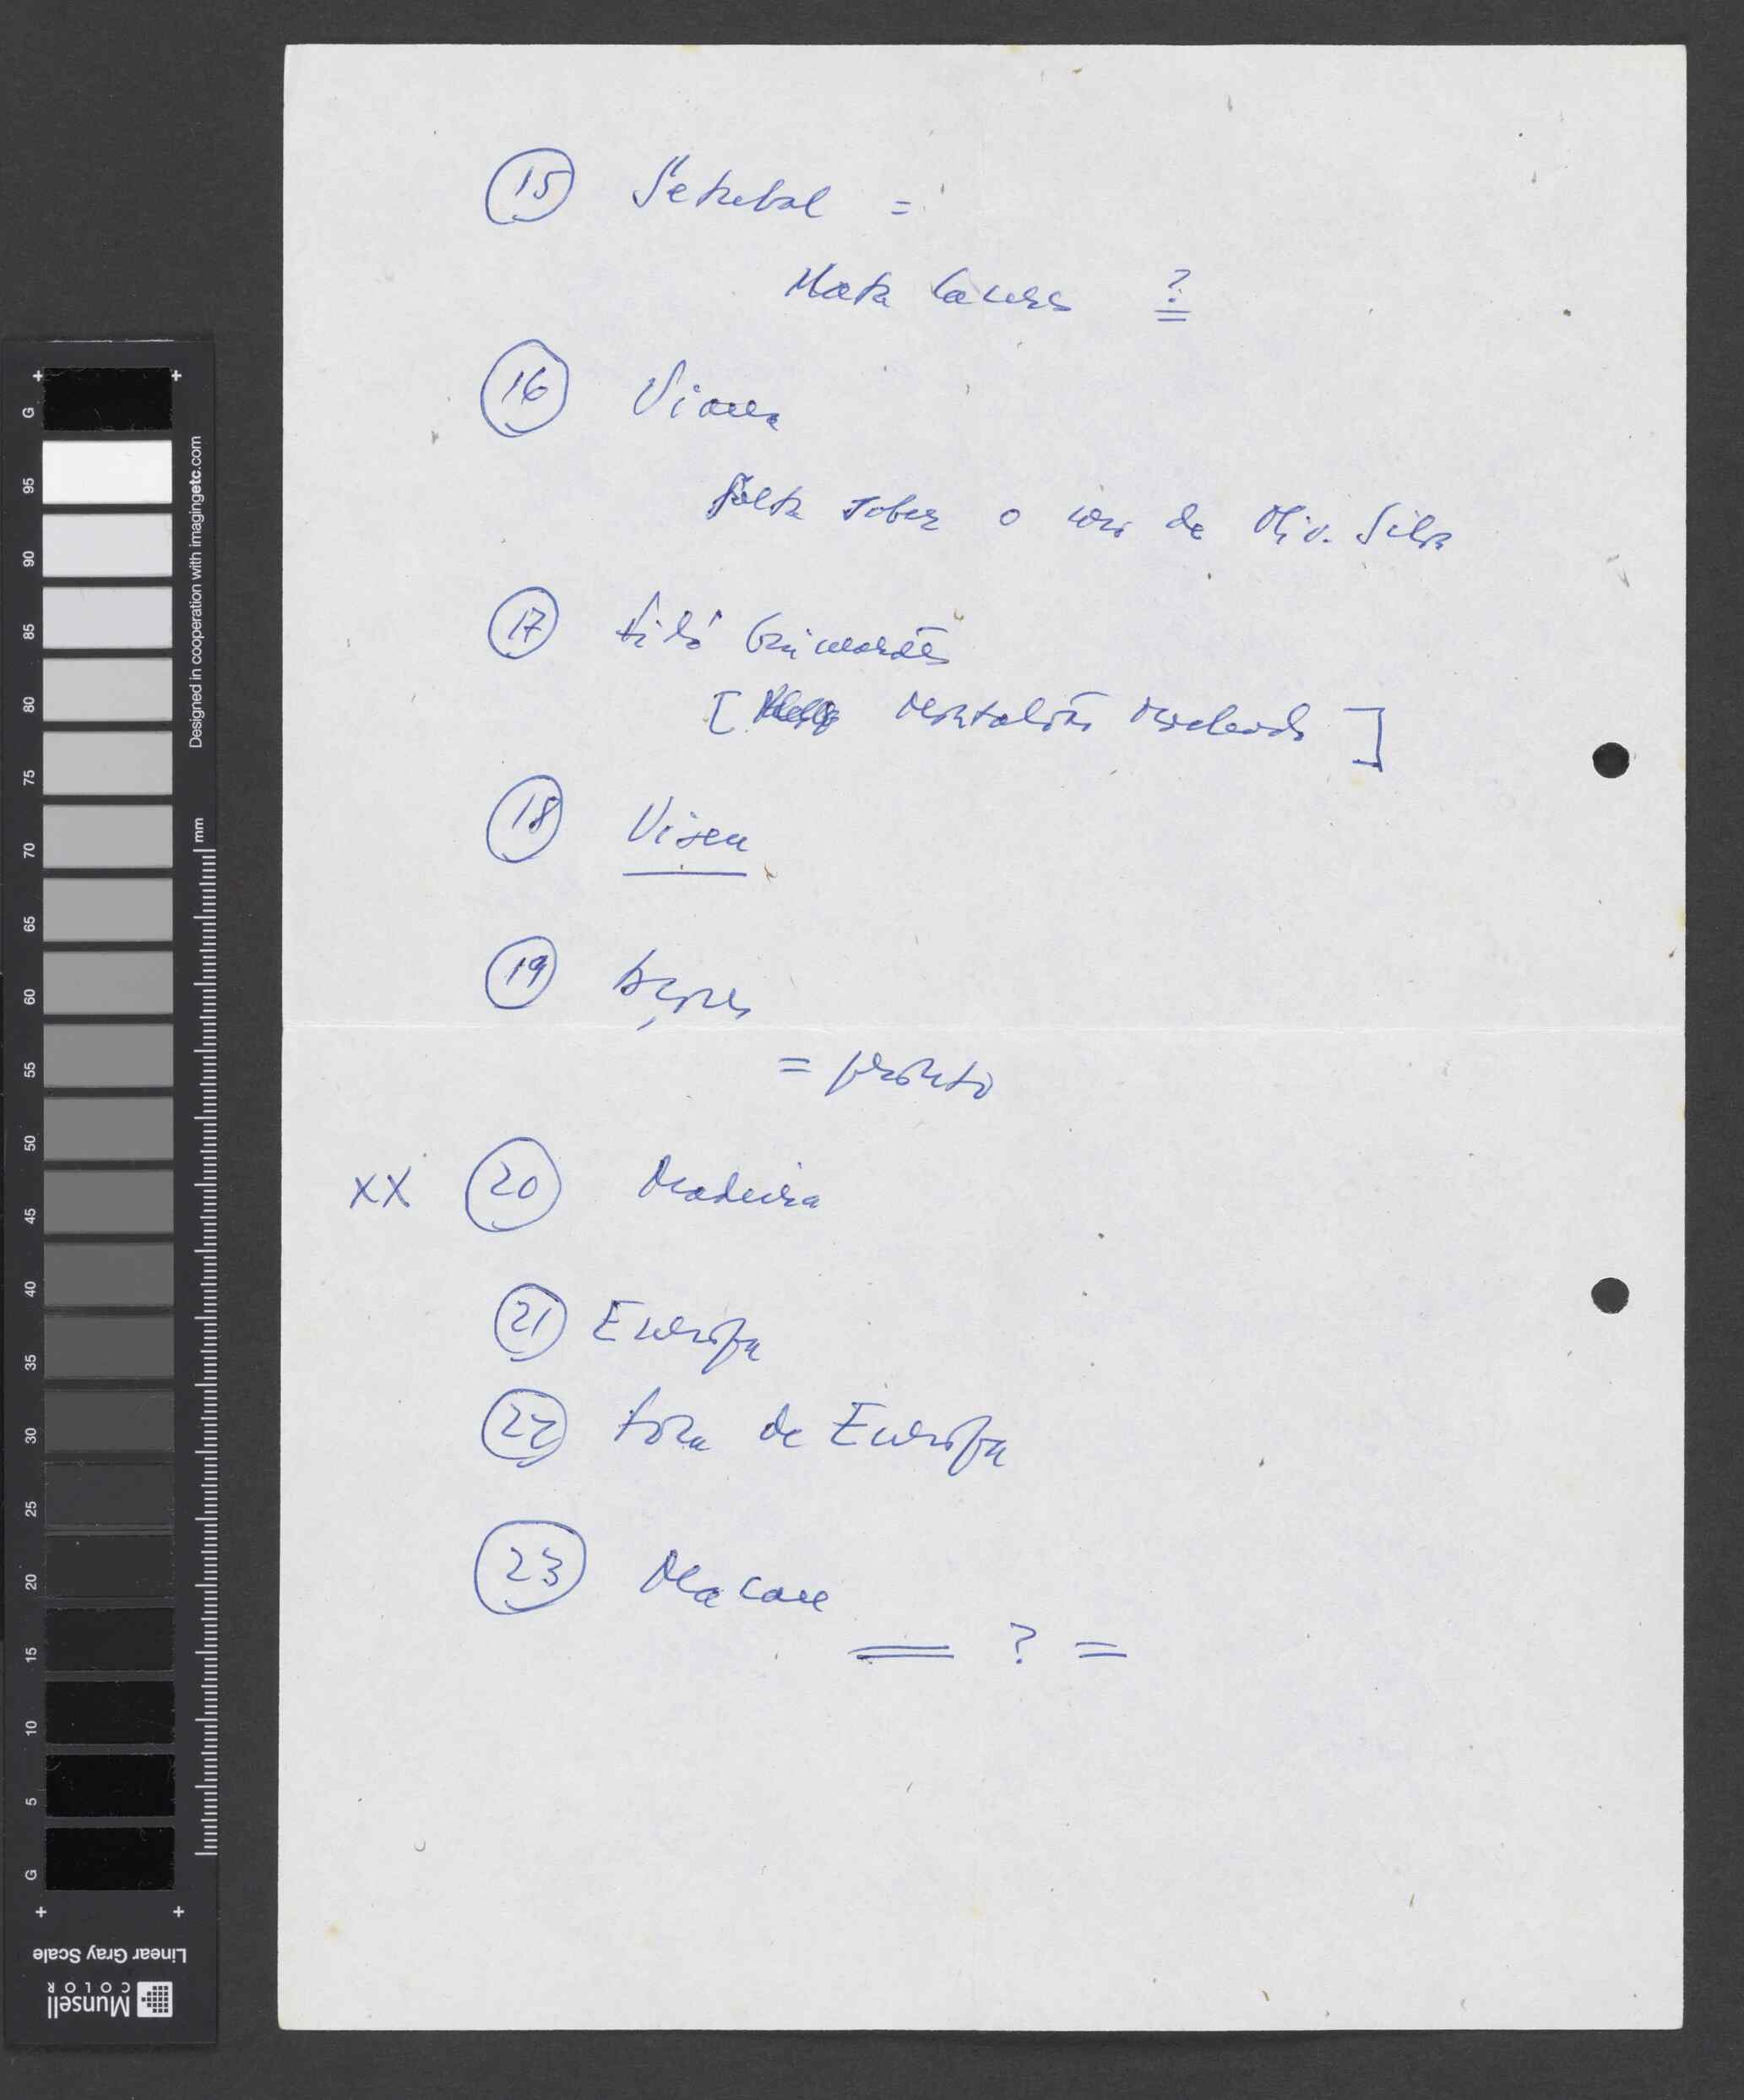 15 Setubal =
Mata Caceres ?
16 Viana
falta saber o cor. de Oliv. Silva
17 Vila Guimarães
[ ]
18 Viseu
19 Açores
= pronto
XX 20 Madeira
21 Europa
22 fora da Europa
23 Macau
= ? =
G
95
90
85
80
75
70
65
60
55
50
45
40
35
30
25
20
15
10
5
G
mm
Designed in cooperation with imagingetc.com
Linear Gray Scale
Munsell
COLOR